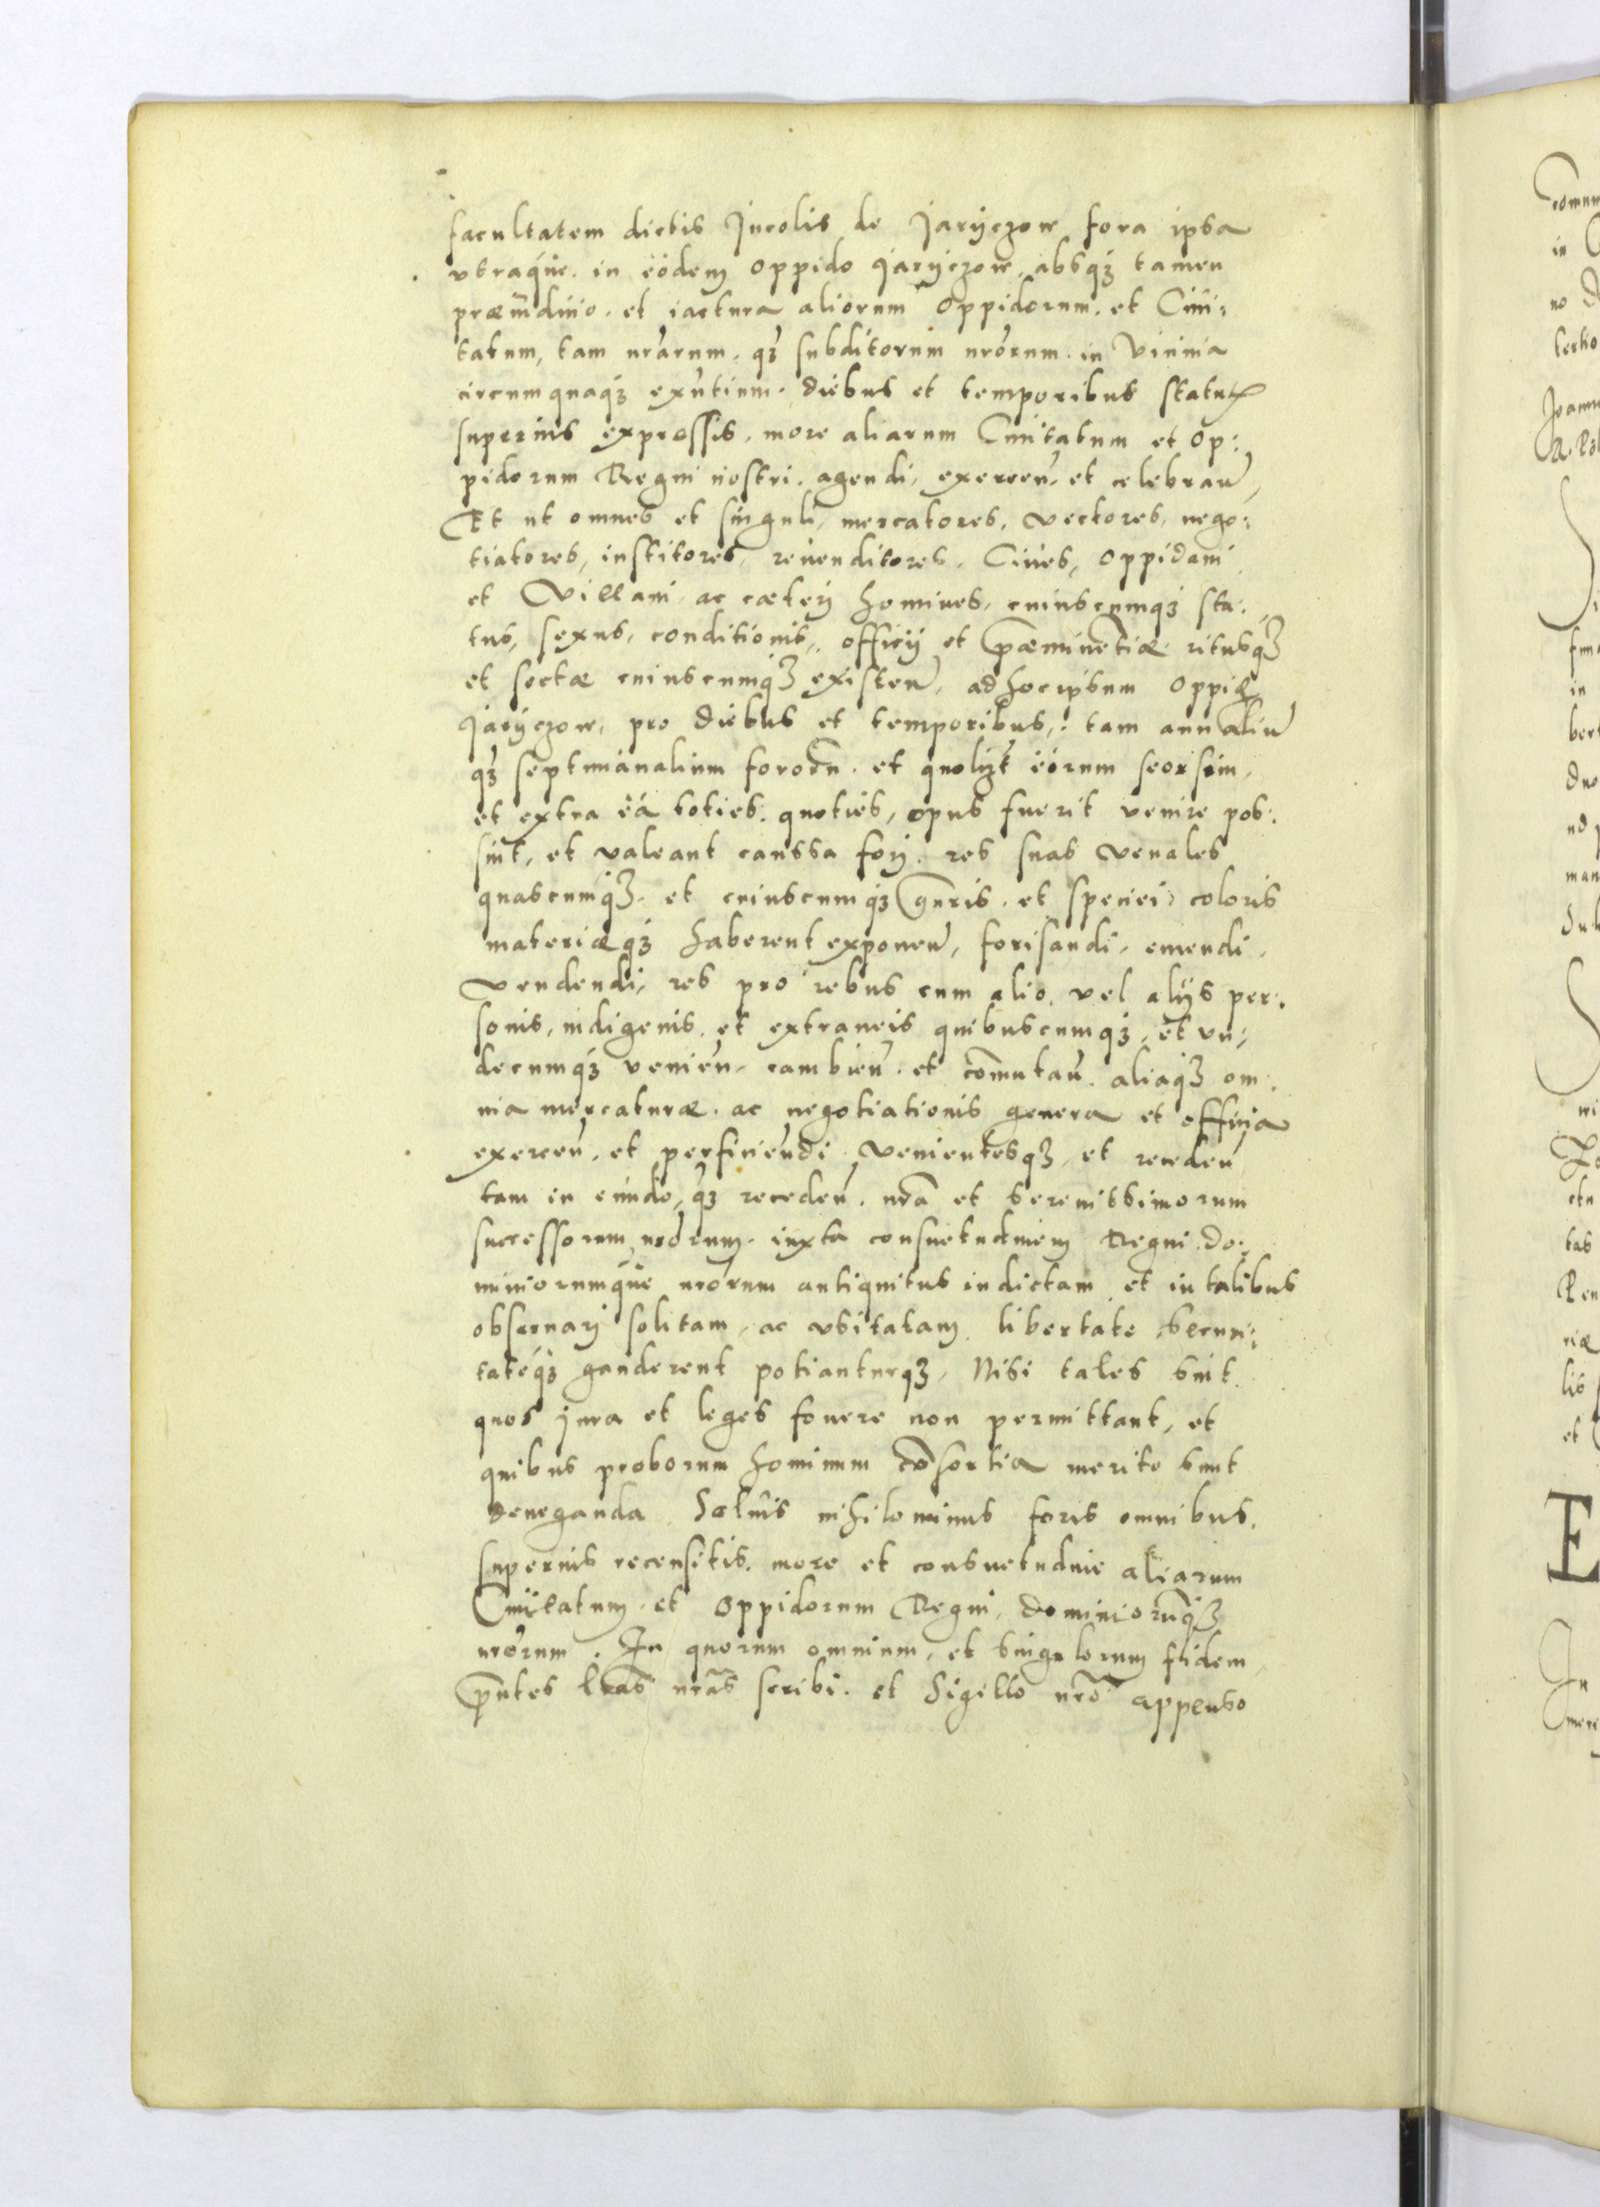 facultatem dictis Incolis de Jaryczow fora ipsa
vtraque in eodem oppido Jaryczow, absqꝫ tamen
præiudicio et iactura aliorum Oppidorum et Ciui:
tatum, tam nrarum qꝫ subditorum nrorum in vicinia
circumquaqꝫ exntium diebus et temporibus
superius expressis more aliarum Ciuitatum et Op:
pidorum Regni nostri agendi, exercen̄ et celebran̄,
Et ut omnes et singuli, mercatores, vectores, nego:
tiatores, institores, reuenditores, Ciues, oppidani
et Villani ac cæteri homines, cuiuscumqꝫ sta:
tus, sexus, conditionis, officij et præminētiæ ritusqꝫ
et sectæ cuiuscumqꝫ existen̄, ad hoc ipsum
Jaryczow, pro diebus et temporibus, tam annaliū
qꝫ septimanalium fororū et quolꝫt eorum seorsim,
et extra ea toties quoties, opus fuerit venire pos:
sint, et valeant caussa fori res suas venales
quascumqꝫ et cuiuscumqꝫ gn̄ris et speciei coloris
materiæqꝫ haberent exponen̄, forisandi, emendi,
vendendi, res pro rebus cum alio vel alijs per:
sonis, indigenis et extraneis quibuscumqꝫ, et vn:
decumqꝫ venien̄ cambien̄ et com̄utan̄ aliaqꝫ om:
nia mercaturæ ac negotiationis genera et officia
exercen̄ et perficiendi venientesqꝫ et receden̄
tam in eundo, qꝫ receden̄ nrā et serenissimorum
successorum nrorum iuxta consuetudinem Regni do:
miniorumque nrorum antiquitus indictam et in talibus
obseruari solitam, ac vsitatam libertate securi:
tateqꝫ gauderent potianturqꝫ, Nisi tales sint
quos jura et leges fouere non permittant, et
quibus proborum hominum cōsortia merito sunt
deneganda Saluis nihilominus foris omnibus
superius recensitis more et consuetudine aliarum
Ciuitatum et Oppidorum Regni, dominiorūqꝫ
nrorum. In quorum omnium, et singulorum fidem
pn̄tes lras nrās scribi et Sigillo nrō appenso